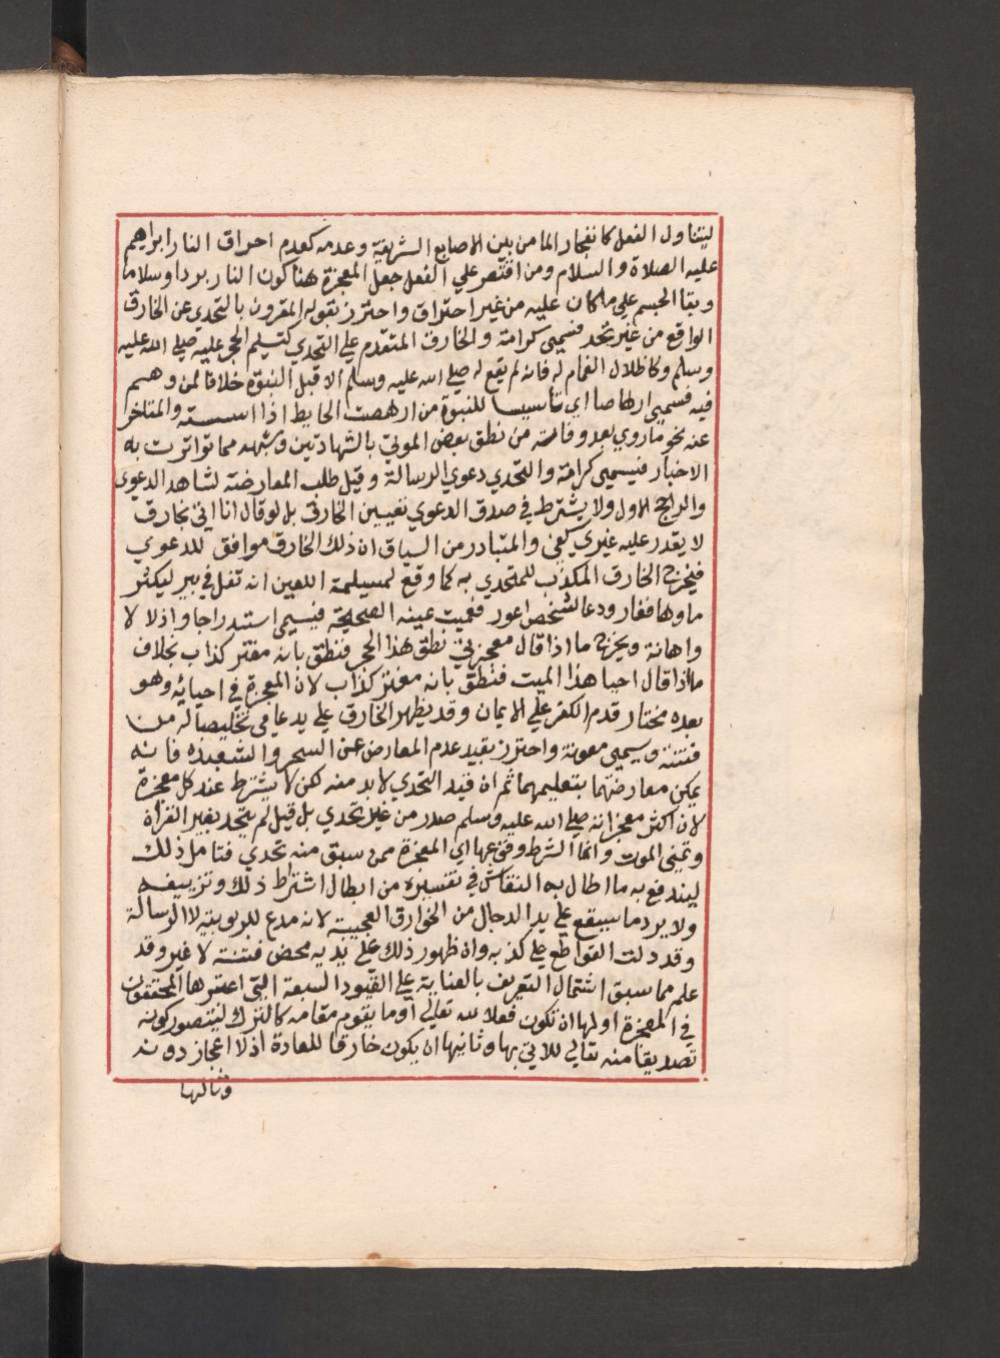 ليتناول الفعل كانفجار الما من بين الاصابع الشريفة وعدمه كعدم احراق النار ابراهيم
عليه الصلاة والسلام ومن اقتصر علي الفعل جعل المعجزة هنا كون النار بردا وسلاما
وبقا الجسم علي ما كان عليه من غير احتراق واحترز بقوله المقرون بالتحدي عن الخارق
الواقع من غير تحد فيسمي كرامة والخارق المتقدم علي التحدي كتسليم الحجر عليه صلي الله عليه
وسلم وكاظلال الغمام له فانه لم يقع له صلي الله عليه وسلم الا قبل النبوة خلافا لمن وهم
فيه فسمي ارهاصا اي تاسيسا للنبوة من ارهصت الحايط اذا اسسته والمتاخر
عنه نحو ما روي بعد وفاته من نطق بعض الموتي بالشهادتين وشبهه مما تواترت به
الاخبار فيسمي كرامة والتحدي دعوي الرسالة وقيل طلب المعارضة لشاهد الدعوي
والراجح الاول ولا يشترط في صدق الدعوي تعيين الخارق بل لو قال انا اتي بخارق
لا يقدر عليه غيري كفي والمتبادر من السياق ان ذلك الخارق موافق للدعوي
فيخرج الخارق المكذب للمتحدي به كما وقع لمسيلمة اللعين انه تفل في بير ليكثر
ماوها فغار ودعا لشخص اعور فعميت عينه الصحيحة فيسمي استدراجا واذلالا
واهانة ويخرج ما اذا قال معجزتي نطق هذا الحجر فنطق بانه مفتر كذاب بخلاف
ما اذا قال احيا هذا الميت فنطق بانه مفتر كذاب لان المعجزة في احيائه وهو
بعده مختار قدم الكفر علي الايمان وقد يظهر الخارق علي يد عامي تخليصا له من
فتنة ويسمي معونة واحترز بقيد عدم المعارض عن السحر والشعبذه فانه
يمكن معارضتهما بتعليمهما ثم ان قيد التحدي لابد منه لكن لا يشترط عند كل معجزة
لان اكثر معجزاته صلي الله عليه وسلم صدر من غير تحدي بل قيل لم يتحد بغير القران
وتمني الموت وانما الشرط وقوعها اي المعجزة ممن سبق منه تحدي فتامل ذلك
ليندفع به ما اطال به النقاش في تفسيره من ابطال اشتراط ذلك وتزييفه
ولا يرد ما سيقع علي يد الدجال من الخوارق العجيبة لانه مدع للربوبية لا الرسالة
وقد دلت القواطع علي كذبه وان ظهور ذلك علي يديه محض فتنة لا غير وقد
علم مما سبق اشتمال التعريف بالعناية علي القيود السبعة التي اعتبرها المحققون
في المعجزة اولها ان تكون فعلا لله تعالي او ما يقوم مقامه كالترك ليتصور كونه
تصديقا منه تعالي للاتي بها وثانيها ان يكون خارقا للعادة اذ لا اعجاز دونه
وثالثها